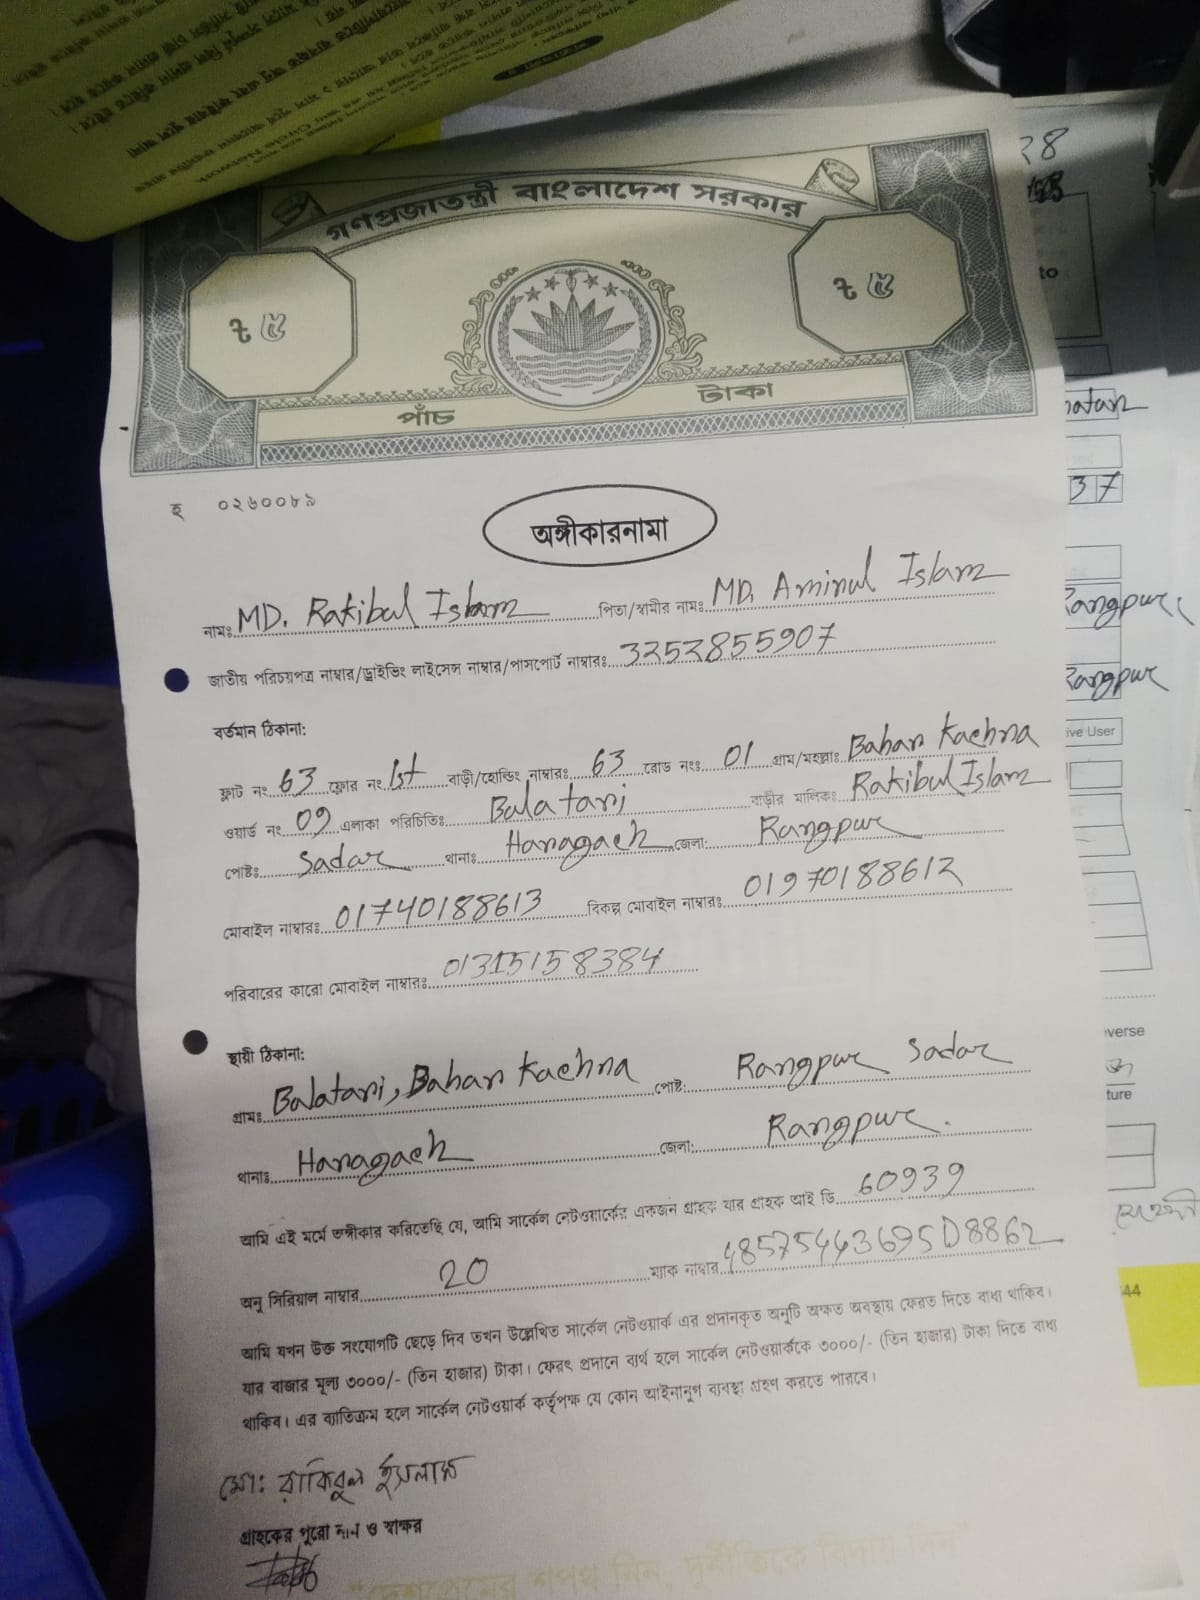 গণপ্রজাতন্ত্রী বাংলাদেশ সরকার
৳ ৫
৳ ৫
পাঁচ টাকা
হ ০২৬০০৮৯
অঙ্গীকারনামা
নামঃ MD. Rakibul Islam পিতা/স্বামীর নামঃ MD. Aminul Islam
জাতীয় পরিচয়পত্র নাম্বার/ড্রাইভিং লাইসেন্স নাম্বার/পাসপোর্ট নাম্বারঃ 3252855907
বর্তমান ঠিকানা:
ফ্লাট নং 63 ফ্লোর নং 1st বাড়ী/হোল্ডিং নাম্বারঃ 63 রোড নংঃ 01 গ্রাম/মহল্লাঃ Bahar Kachna
ওয়ার্ড নং 09 এলাকা পরিচিতিঃ Balatari বাড়ীর মালিকঃ Rakibul Islam
পোষ্টঃ Sadar থানাঃ Haragach জেলা: Rangpur
মোবাইল নাম্বারঃ 01740188613 বিকল্প মোবাইল নাম্বারঃ 01970188612
পরিবারের কারো মোবাইল নাম্বারঃ 01315158384
স্থায়ী ঠিকানা:
গ্রামঃ Balatari, Bahar Kachna পোষ্ট: Rangpur Sadar
থানাঃ Haragach জেলা: Rangpur.
আমি এই মর্মে অঙ্গীকার করিতেছি যে, আমি সার্কেল নেটওয়ার্কের একজন গ্রাহক যার গ্রাহক আই ডি 60939
অনু সিরিয়াল নাম্বার 20 ম্যাক নাম্বার 48575443695D8862
আমি যখন উক্ত সংযোগটি ছেড়ে দিব তখন উল্লেখিত সার্কেল নেটওয়ার্ক এর প্রদানকৃত অনুটি অক্ষত অবস্থায় ফেরত দিতে বাধ্য থাকিব।
যার বাজার মূল্য ৩০০০/- (তিন হাজার) টাকা। ফেরৎ প্রদানে ব্যর্থ হলে সার্কেল নেটওয়ার্ককে ৩০০০/- (তিন হাজার) টাকা দিতে বাধ্য
থাকিব। এর ব্যাতিক্রম হলে সার্কেল নেটওয়ার্ক কর্তৃপক্ষ যে কোন আইনানুগ ব্যবস্থা গ্রহণ করতে পারবে।
মো: রাকিবুল ইসলাম
গ্রাহকের পুরো নাম ও স্বাক্ষর
"দেশপ্রেমের শপথ নিন, দুর্নীতিকে বিদায় দিন"
২৪
to
37
Rangpur
Rangpur
ive User
verse
ture
44